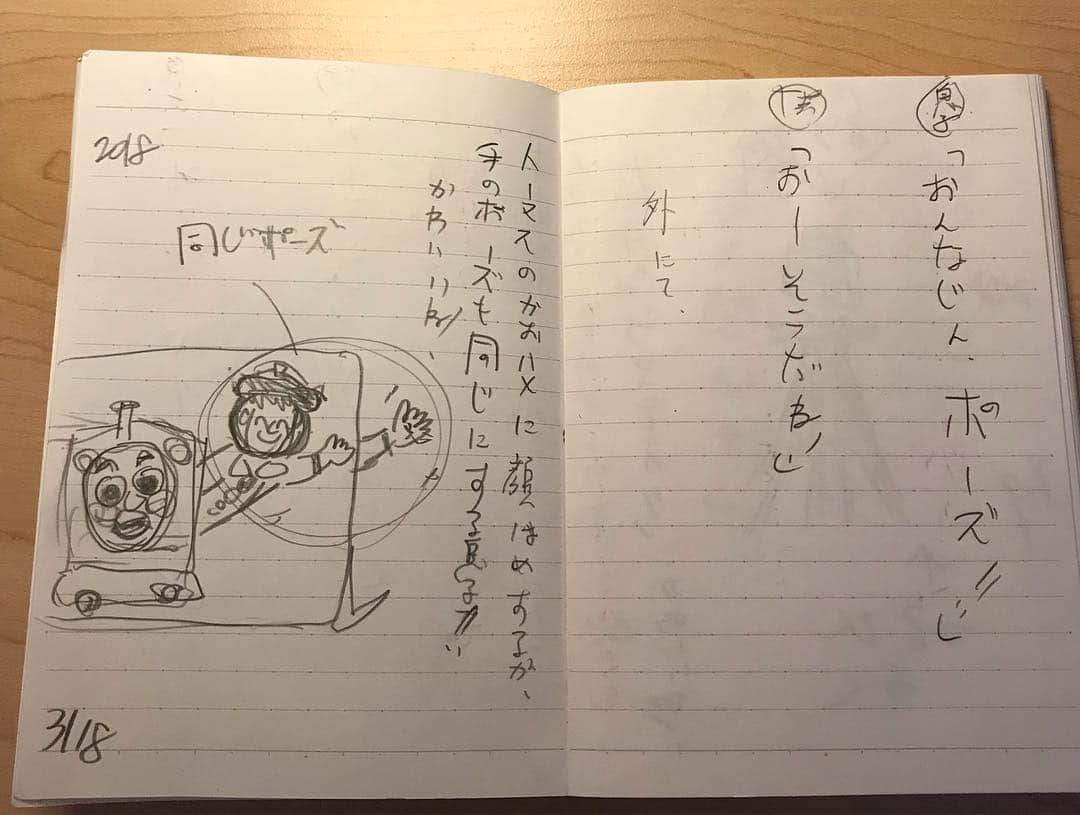 息子「おんなじ、ポーズ!!」
僕「おーそうだね!」
外にて、
トーマスのかおハメに顔はめするが、
手のポーズも同じにする息子!!
かわいいね!、
同じポーズ
2018
3/18